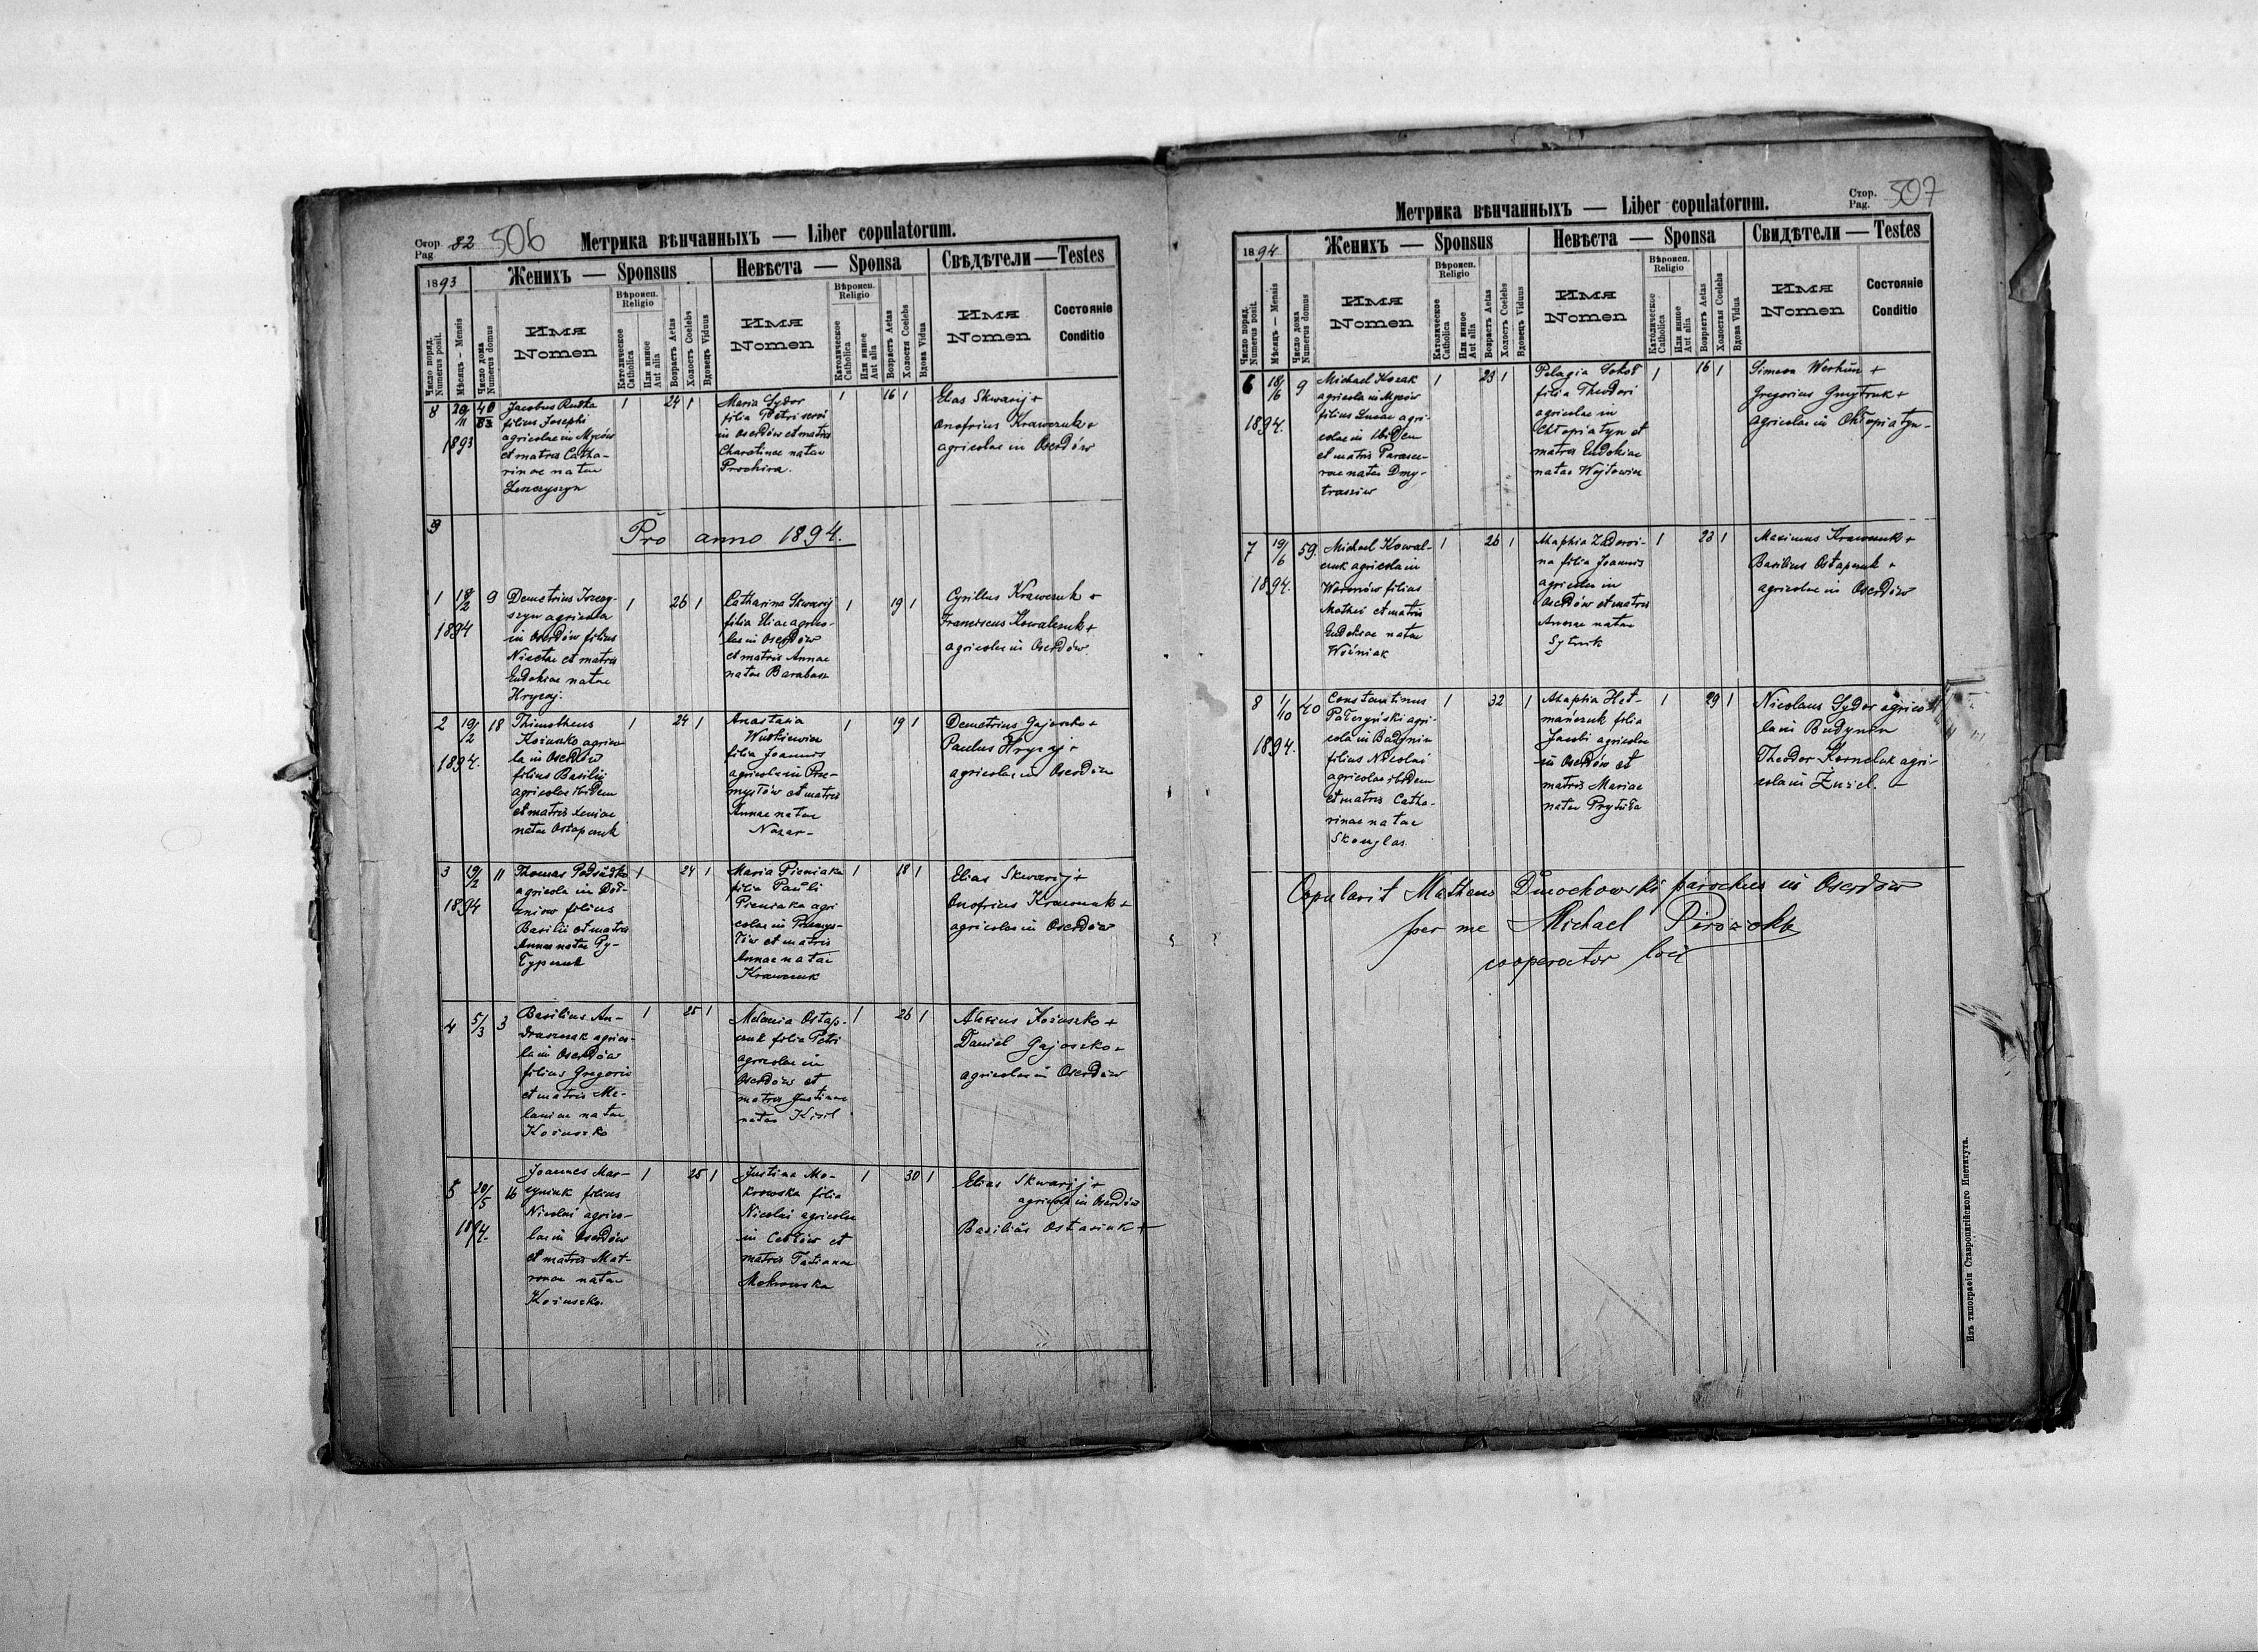 Стор. Pag. 82 506 Метрика вѣнчанныхъ — Liber copulatorum.
1893 Женихъ — Sponsus Невѣста — Sponsa Свѣдѣтели — Testes
Число поряд. Numerus posit.
Мѣсяцъ — Mensis
Число дома Numerus domus
Имя Nomen
Вѣроисп. Religio
Католическое Catholica
Или инное Aut alia
Возрастъ Aetas
Холостъ Coelebs
Вдовецъ Viduus
Имя Nomen
Вѣроисп. Religio
Католическое Catholica
Или инное Aut alia
Возрастъ Aetas
Холоста Coelebs
Вдова Vidua
Имя Nomen
Состояніе Conditio
8 20/11 1893 40
Jacobus Rudka
filius Josephi
agricolae in Myców
et matris Catha-
rinae natae
1 24 1
Maria Sydor
filia Petri servi
in Oserdów et matris
natae
Prochira.
1 16 1
Elias Skwarij +
Onofrius Krawczuk +
agricolae in Oserdów
9
Pro anno 1894.
1 18/2 1894 9
Demetrius
agricola
in Oserdów filius
Nicetae et matris
Eudokiae natae
Hrycaj.
1 26 1
Catharina Skwarij
filia Eliae agrico-
lae in Oserdów
et matris Annae
natae Barabasz
1 19 1
Cyrillus Krawczuk +
Franciscus Kowalczuk +
agricolae in Oserdów
2 19/2 1894. 18
Thimotheus
Kożuszko agrico-
la in Oserdów
filius Basilii
agricolae ibidem
et matris Xeniae
natae Ostapczuk
1 24 1
Anastasia
filia Joannis
agricolae in Prze-
mysłów et matris
Annae natae
Nazar -
1 19 1
Demetrius Gajoszko +
Paulus Hrycaj +
agricolae in Oserdów
3 19/2 1894 11
Thomas
agricola in
filius
Basilii et matris
Annae natae Py-
1 24 1
Maria Pieniaka
filia Pauli
Pieniaka agri
colae in Przemys-
łów et matris
Annae natae
Krawczuk
1 18 1
Elias Skwarij +
Onofrius Krawczuk +
agricolae in Oserdów
4 5/3 3
Basilius An-
draszczak agrico-
la in Oserdów
filius Gregorii
et matris Me-
laniae natae
Kożuszko
1 25 1
Melania Ostap-
czuk filia Petri
agricolae in
Oserdów et
matris Justinae
natae Kisil
1 26 1
Alexius Kożuszko +
Daniel Gajoszko +
agricolae in Oserdów
5 20/5 1894. 16
Joannes Mar-
cyniuk filius
Nicolai agrico-
lae in Oserdów
et matris Mat-
ronae natae
Kożuszko.
1 25 1
Justina Mo-
krowska filia
Nicolai agricolae
in Cebłów et
matris Tatianae
Mokrowska
1 30 1
Elias Skwarij +
agricola in Oserdów
Basilius Ostasiuk +
Метрика вѣнчанныхъ — Liber copulatorum. Стор. Pag. 507
1894 Женихъ — Sponsus Невѣста — Sponsa Свидѣтели — Testes
Число поряд. Numerus posit.
Мѣсяцъ — Mensis
Число дома Numerus domus
Имя Nomen
Вѣроисп. Religio
Католическое Catholica
Или инное Aut alia
Возрастъ Aetas
Холостъ Coelebs
Вдовецъ Viduus
Имя Nomen
Вѣроисп. Religio
Католическое Catholica
Или инное Aut alia
Возрастъ Aetas
Холостая Coelebs
Вдова Vidua
Имя Nomen
Состояніе Conditio
6 18/6 1894. 9
Michael Kozak
agricola in Myców
filius Lucae agri-
colae in ibidem
et matris Parasce-
vae natae Dmy-
trasziw
1 23 1
Pelagia Sokół
filia Theodori
agricolae in
Chłopiatyn et
matris Eudokiae
natae Wojtowicz
1 16 1
Simeon Werhun +
Gregorius Gmytruk +
agricolae in Chłopiatyn -
7 19/6 1894. 59.
Michael Kowal-
czuk agricola in
Woronów filius
Mathei et matris
Eudokiae natae
Woźniak
1 26 1
Ahaphia Zadoroż-
na filia Joannis
agricolae in
Oserdów et matris
Annae natae
Sytnik
1 23 1
Maximus Krawczuk +
Basilius Ostapczuk +
agricolae in Oserdów
8 1/10 1894. 40
Constantinus
Pałczyński agri-
cola in Budynin
filius Nicolai
agricolae ibidem
et matris Catha-
rinae natae
1 32 1
Ahaphia Het-
mańczuk filia
Jacobi agricolae
in Oserdów et
matris Mariae
natae Prytuła
1 29 1
Nicolaus Sydor agrico-
la in Budynin
Theodor Korneluk agri-
cola in Żużel.
Copulavit Matheus Dmochowski parochus in Oserdów
per me Michael
cooperator loci
Изъ типографіи Ставропигійского Института.